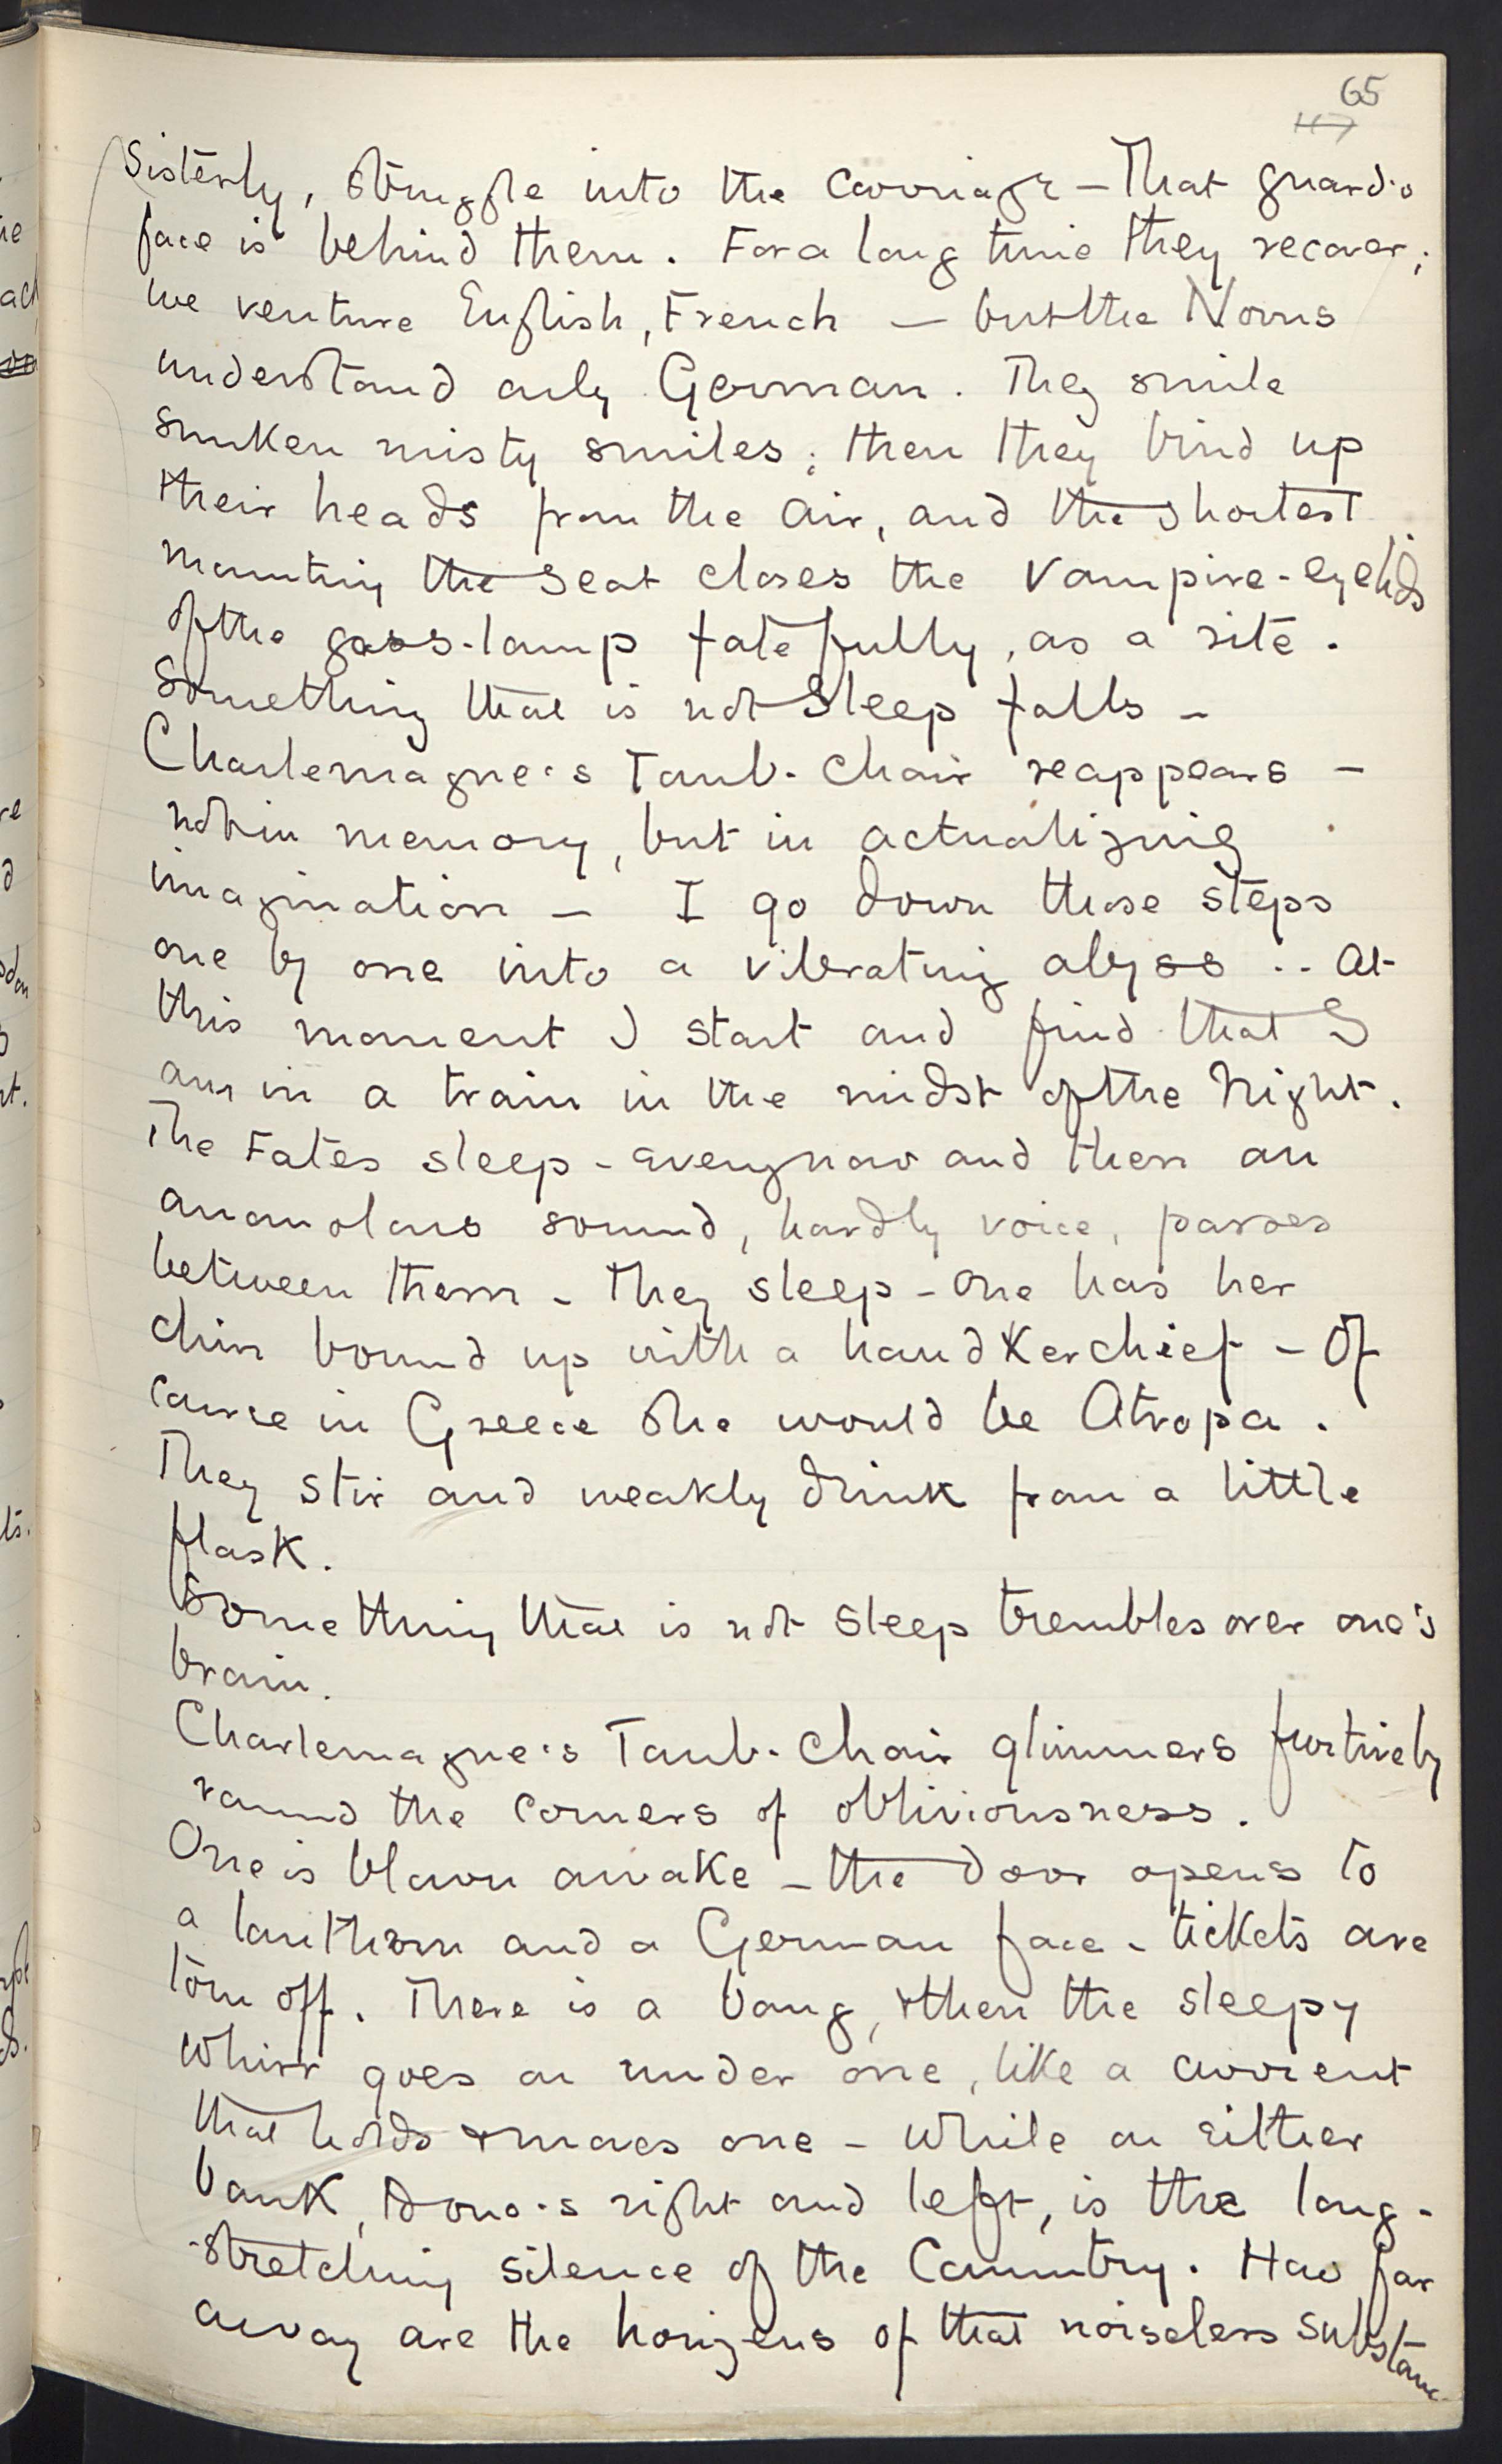 65
117
Sisterly, struggle into the carriage — That guard's
face is behind them. For a long time they recover;
we venture English, French — but the Norns
understand only German. They smile
sunken misty smiles; then they bind up
their heads from the air, and the shortest
mounting the seat closes the vampire-eyelids
of the gass-lamp fatefully, as a rite.
Something that is not Sleep falls —
Charlemagne's Tomb-chair reappears —
not in memory, but in actualizing
imagination — I go down those steps
one by one into a vibrating abyss .. At
this moment I start and find that I
am in a train in the midst of the Night.
The Fates sleep - every now and then an
anamolous sound, hardly voice, passes
between them - They sleep - One has her
chin bound up with a handkerchief - Of
course in Greece she would be Atropa.
They stir and weakly drink from a little
flask.
Something that is not Sleep trembles over one's
brain.
Charlemagne's Tomb-chair glimmers furtively
round the corners of obliviousness.
One is blown awake - the door opens to
a lanthorn and a German face - tickets are
torn off. There is a bang, & then the sleepy
whirr goes on under one, like a current
that holds & moves one - while on either
bank, to one's right and left, is the long-
-stretching silence of the Country. How far
away are the horizens of that noiseless substance